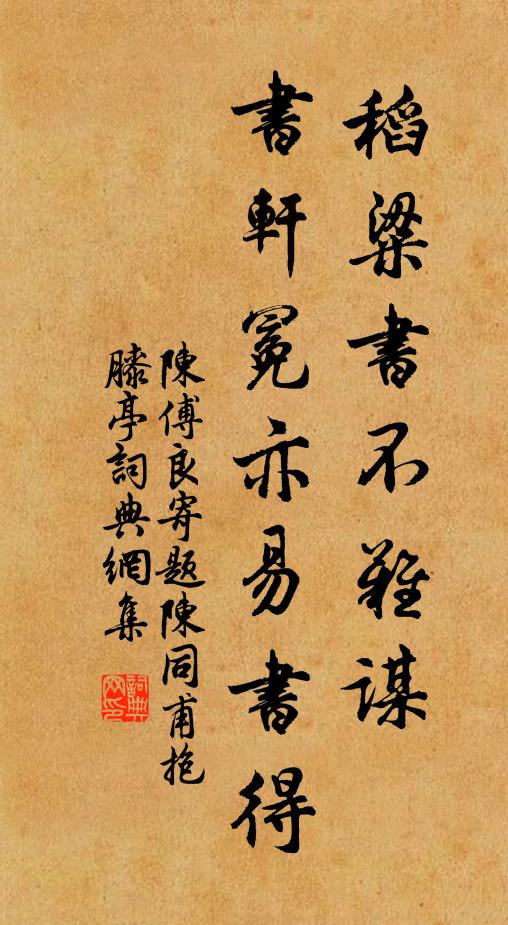 稻粱書不難謀
書軒冕亦易書得
陳傅良寄題陳同甫抱
膝亭詞典網集
詞典網印